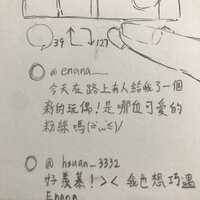 39 127
@enana__
今天在路上有人給我了一個
新的玩偶!是哪位可愛的
粉絲嗎(≧ω≦)/
@hauan_3332
好羨慕!>< 我也想巧遇
Enana